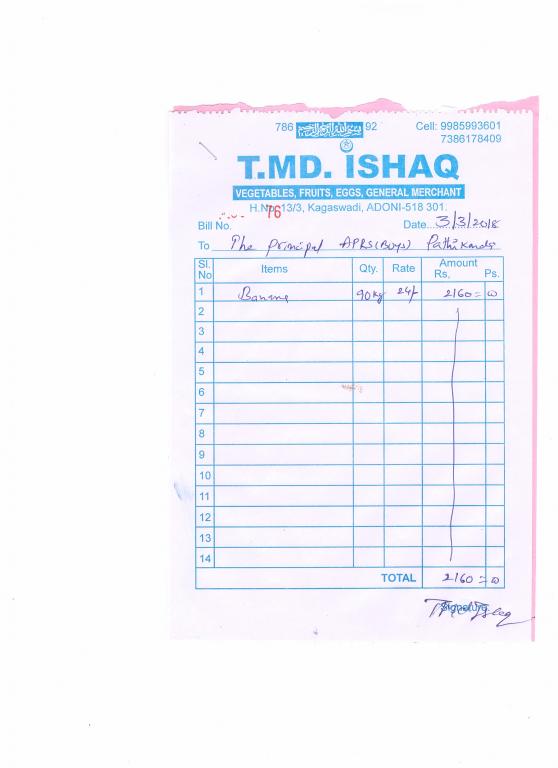 786 92 Cell: 9985993601
7386178409
T.MD. ISHAQ
VEGETABLES, FRUITS, EGGS, GENERAL MERCHANT
H.No. 13/3, Kagaswadi, ADONI-518 301.
76
Bill No. Date...3/3/2018
To The Principal APRS (Boys)
Sl. No Items Qty. Rate Amount Rs. Ps.
1 Banana 90 kg 24/- 2160 = 00
2
3
4
5
6
7
8
9
10
11
12
13
14
TOTAL 2160 = 00
Signature